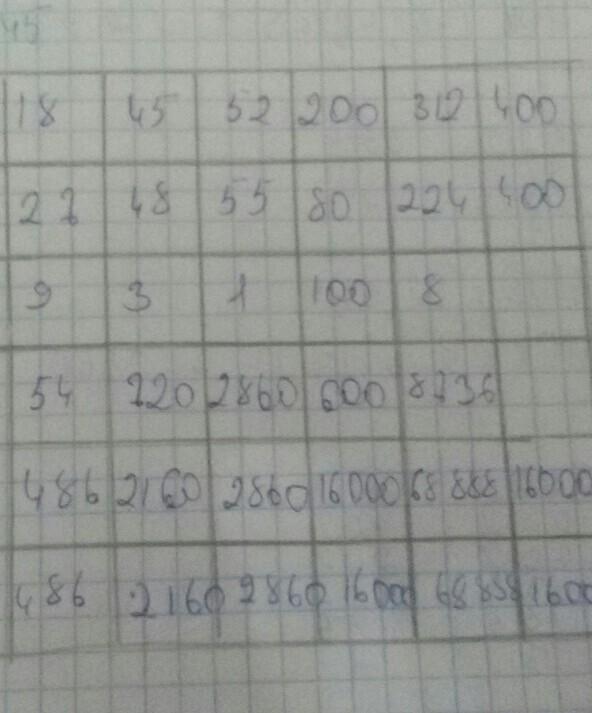 45
18 45 52 200 312 400
27 48 55 80 224 400
9 3 1 100 8
54 720 2860 600 8736
486 2160 2860 16000 68 888 16000
486 2160 2860 16000 1600